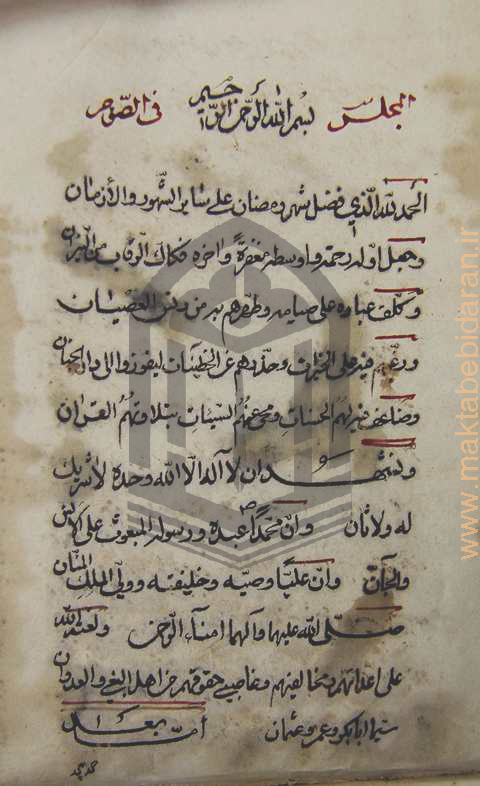 المجلس بسم الله الرحمن الرحيم في الصوم
الحمد لله الذي فضل شهر رمضان على ساير الشهور والأزمان
وجعل اوله رحمة واوسطه مغفرة واخره فكاك الرقاب من النيران
وكلف عباده على صيامه وطهرهم به من دنس العصيان
ورغبهم فيه على الخيرات وحذرهم عن الخطيئات ليفوزوا الى دار الجنان
وضاعف فيه لهم الحسنات ومحى عنهم السيئات بتلاوتهم القران
ونشهد ان لا آله الا الله وحده لا شريك
له ولا ثان وان محمداً عبده ورسوله المبعوث على الانس
والجان وان علياً وصيه وخليفته وولي الملك المنان
صلى الله عليهما وآلهما امناء الرحمن ولعنة الله
على اعدائهم ومخالفيهم وغاصبي حقوقهم من اهل البغي والعدوان
سيما ابابكر وعمر وعثمان امّا بعد
www.maktabebidaran.ir